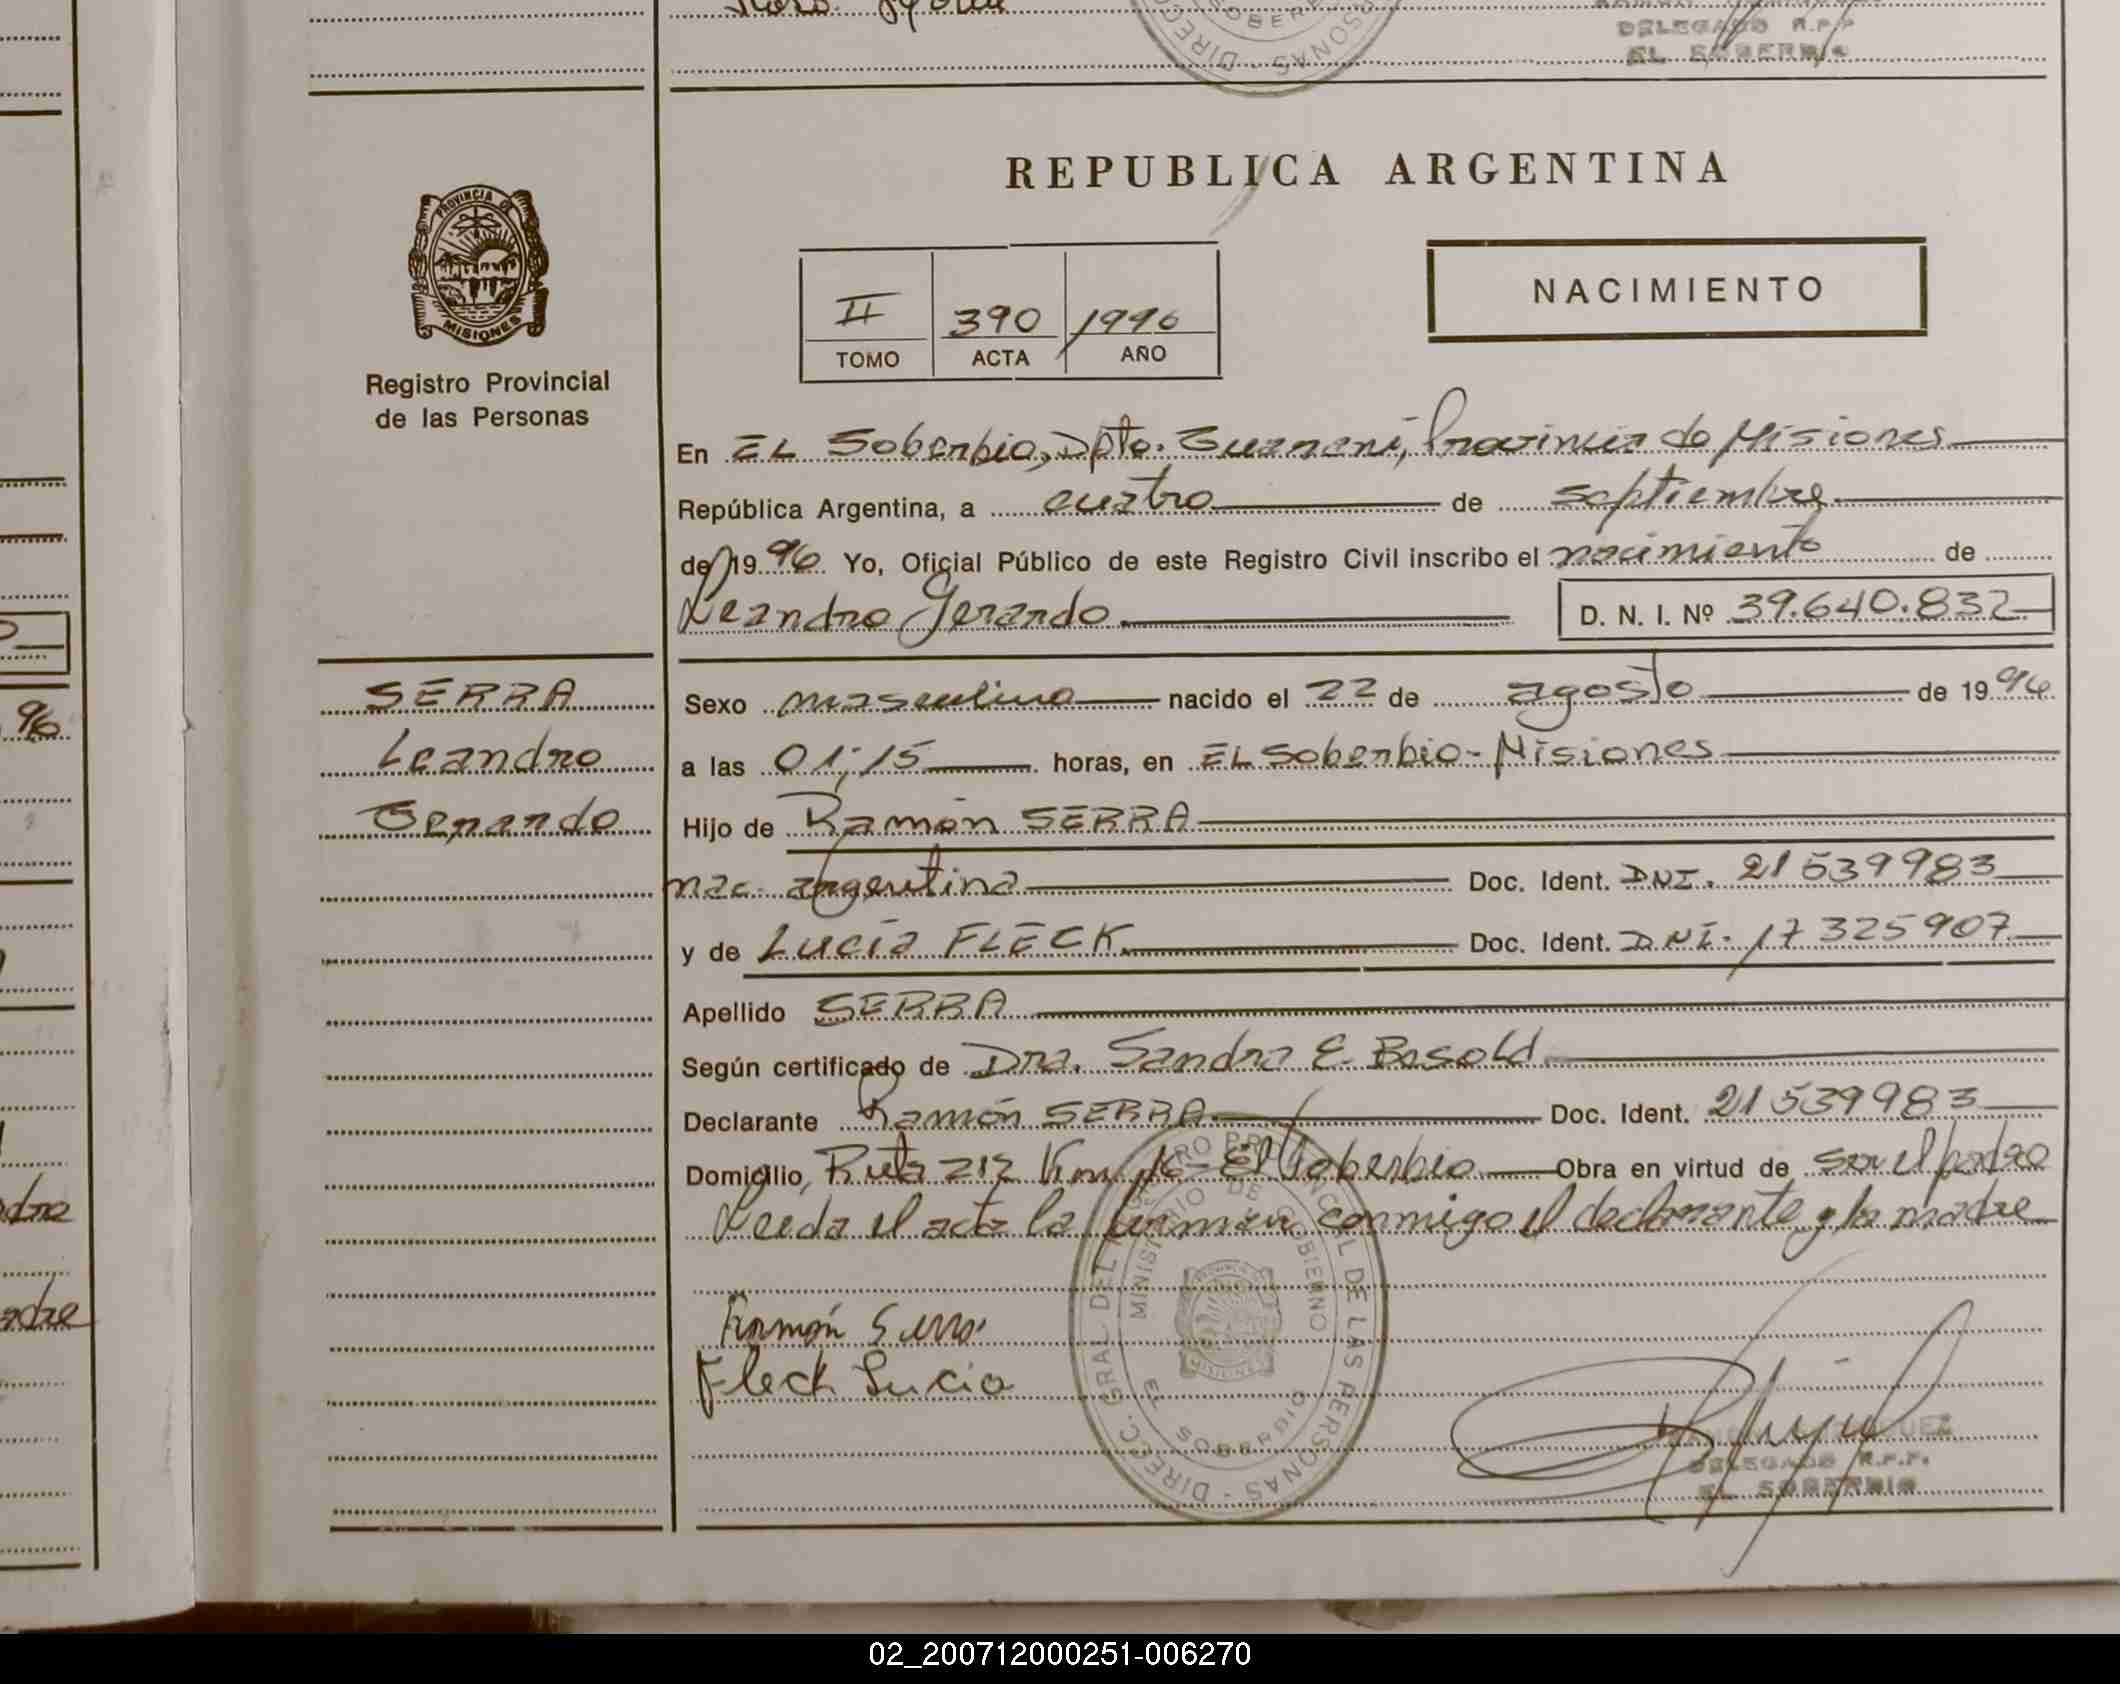 DIRECC
SONAS
SOBERBIO
DELEGADO R.P.P
EL SOBERBIO
REPUBLICA ARGENTINA
PROVINCIA DE
MISIONES
Registro Provincial
de las Personas
II 390 1996
TOMO ACTA AÑO
NACIMIENTO
En EL Soberbio, Dpto. Guarani, Provincia de Misiones
República Argentina, a cuatro de septiembre
de 1996 Yo, Oficial Público de este Registro Civil inscribo el nacimiento de
Leandro Gerardo D. N. I. Nº 39.640.832
96
SERRA
Leandro
Gerardo
Sexo masculino nacido el 22 de agosto de 1996
a las 01;15 horas, en EL Soberbio - Misiones
Hijo de Ramón SERRA
nac. argentina Doc. Ident. DNI. 21539983
y de Lucía FLECK Doc. Ident. DNI. 17325907
Apellido SERRA
Según certificado de Dra. Sandra E. Basold
Declarante Ramón SERRA Doc. Ident. 21539983
Domicilio, Ruta 212 Km El Soberbio Obra en virtud de ser el padre
Leeda el acta la firman conmigo el declarante y la madre
Ramón Serra
Fleck Lucia
DIRECC. GRAL DEL REGISTRO PROVINCIAL DE LAS PERSONAS
MINISTERIO DE GOBIERNO
EL SOBERBIO
MISIONES
DELEGADO R.P.P.
EL SOBERBIO
02_200712000251-006270